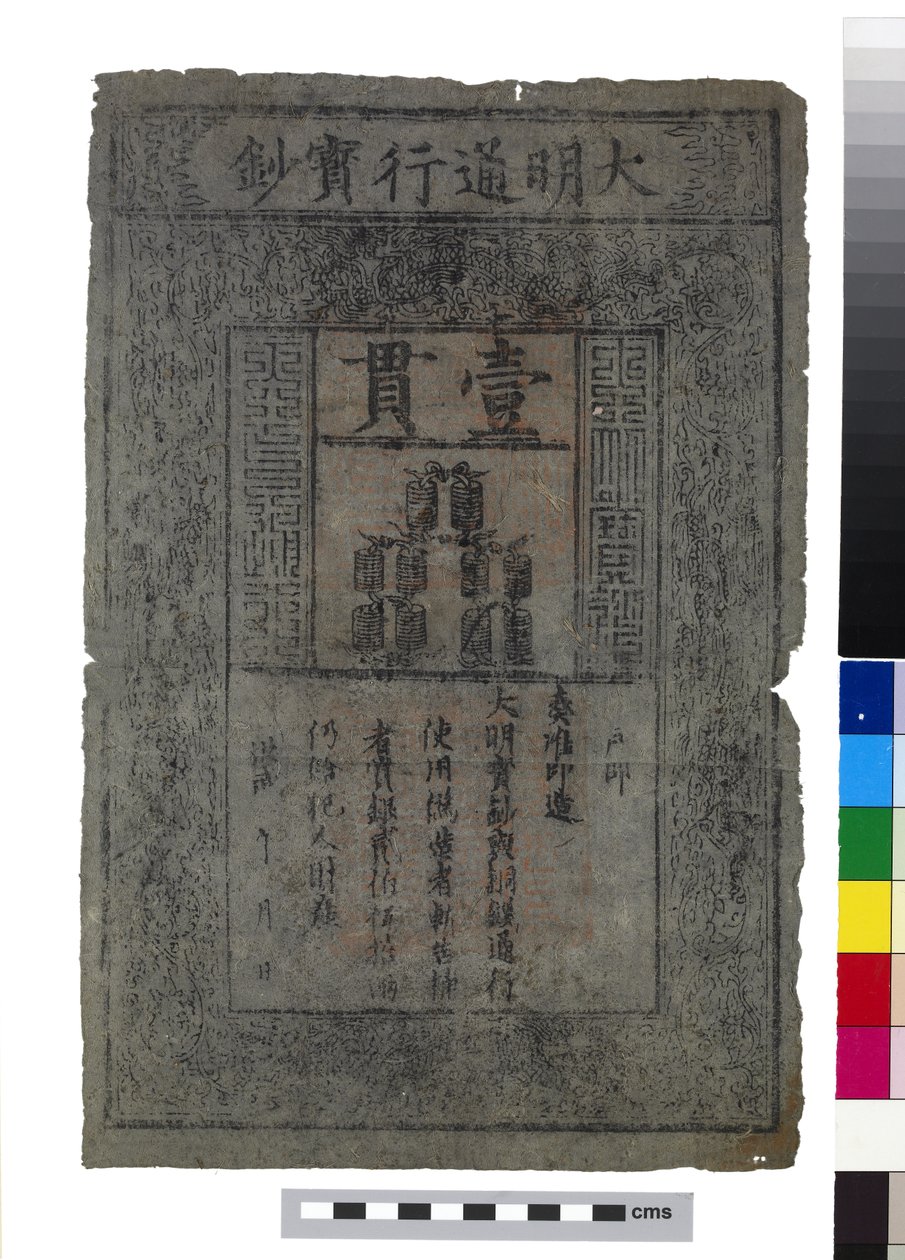 大明通行寶鈔
壹貫
戶部
奏准印造
大明寶鈔與銅錢通行
使用偽造者斬告捕
者賞銀貳伯伍拾兩
仍給犯人財產
洪武 年 月 日
cms